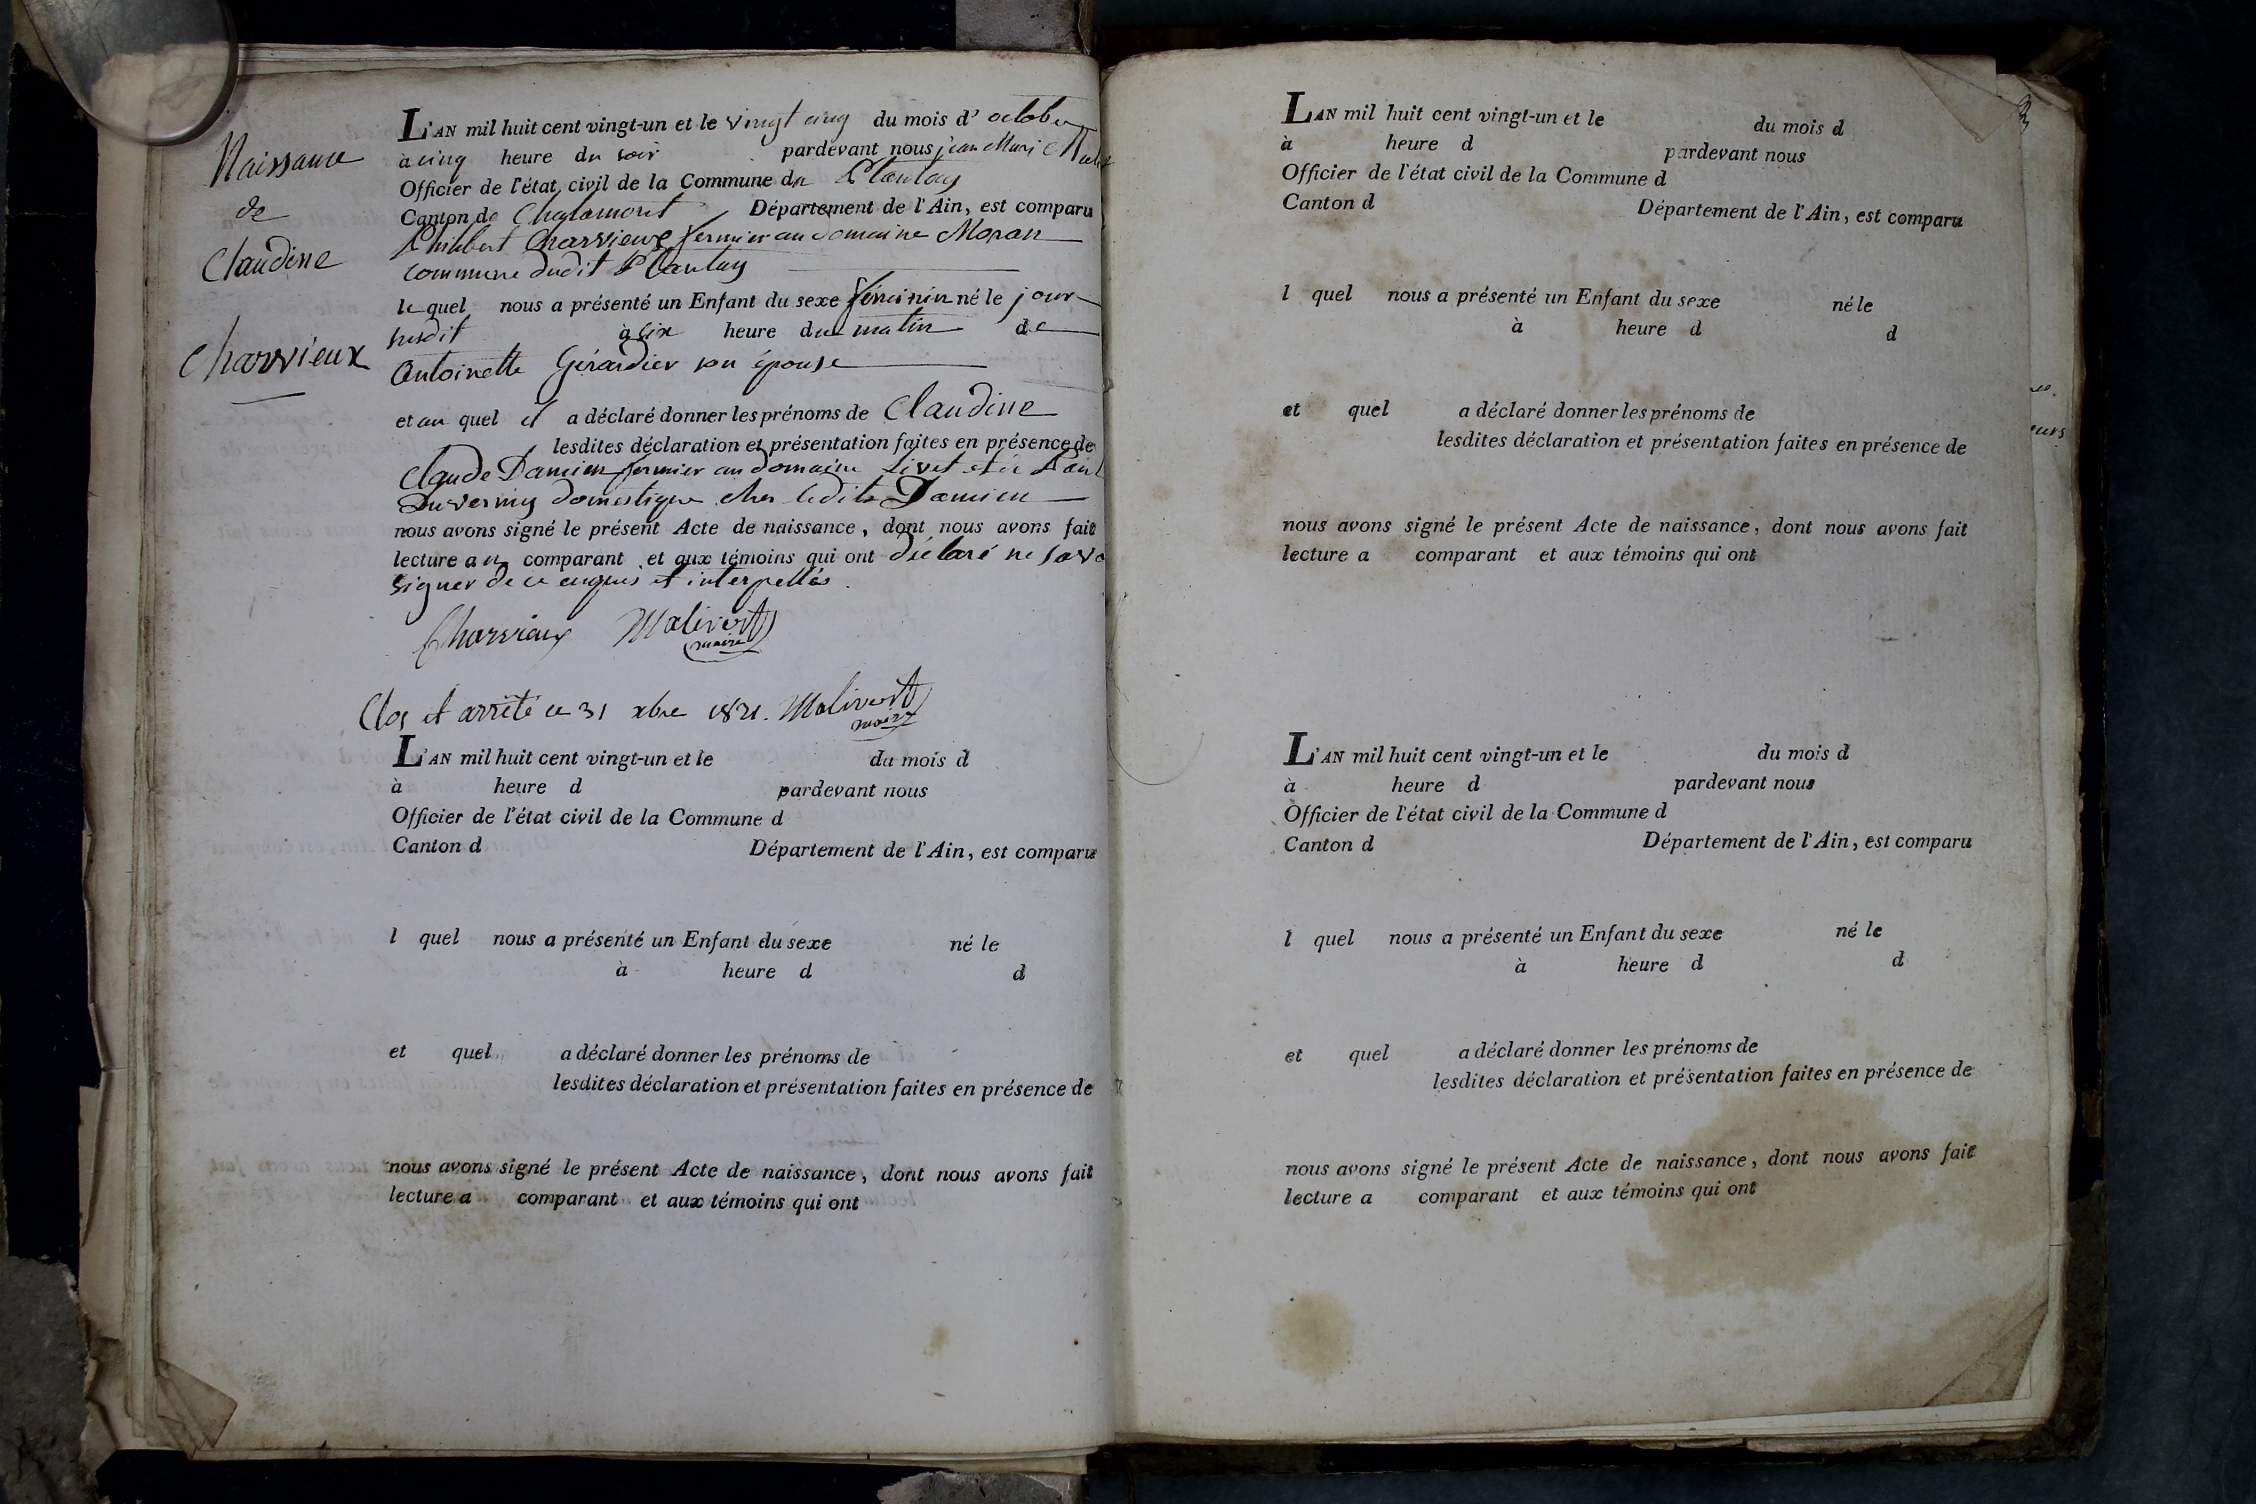 Naissance
de
Claudine
Charvieux
L'AN mil huit cent vingt-un et le vingt cinq du mois d' octobre
à cinq heure du soir pardevant nous jean Marie
Officier de l'état civil de la Commune du Plantay
Canton de Chalamont Département de l'Ain, est comparu
Philibert Charvieux fermier au domaine Moran
commune dudit Plantay
le quel nous a présenté un Enfant du sexe féminin né le jour
susdit à six heure du matin de
Antoinette Gérardier son épouse
et au quel il a déclaré donner les prénoms de Claudine
lesdites déclaration et présentation faites en présence de
Claude Damien fermier au domaine Livet et de
Duverney domestique chez ledit Damien
nous avons signé le présent Acte de naissance, dont nous avons fait
lecture au comparant et aux témoins qui ont déclaré ne savo
signer de ce enquis et interpellés.
Charvieux Malivert
maire
Clos et arrêté ce 31 xbre 1821. Malivert
maire
L'AN mil huit cent vingt-un et le du mois d
à heure d pardevant nous
Officier de l'état civil de la Commune d
Canton d Département de l'Ain, est comparu
l quel nous a présenté un Enfant du sexe né le
à heure d d
et quel a déclaré donner les prénoms de
lesdites déclaration et présentation faites en présence de
nous avons signé le présent Acte de naissance, dont nous avons fait
lecture a comparant et aux témoins qui ont
L'AN mil huit cent vingt-un et le du mois d
à heure d pardevant nous
Officier de l'état civil de la Commune d
Canton d Département de l'Ain, est comparu
l quel nous a présenté un Enfant du sexe né le
à heure d d
et quel a déclaré donner les prénoms de
lesdites déclaration et présentation faites en présence de
nous avons signé le présent Acte de naissance, dont nous avons fait
lecture a comparant et aux témoins qui ont
L'AN mil huit cent vingt-un et le du mois d
à heure d pardevant nous
Officier de l'état civil de la Commune d
Canton d Département de l'Ain, est comparu
l quel nous a présenté un Enfant du sexe né le
à heure d d
et quel a déclaré donner les prénoms de
lesdites déclaration et présentation faites en présence de
nous avons signé le présent Acte de naissance, dont nous avons fait
lecture a comparant et aux témoins qui ont